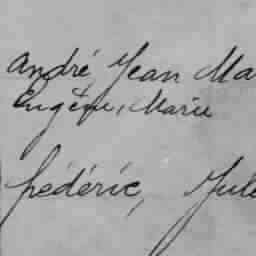 André, Jean Ma
Eugène, Marie
frédéric, Jule